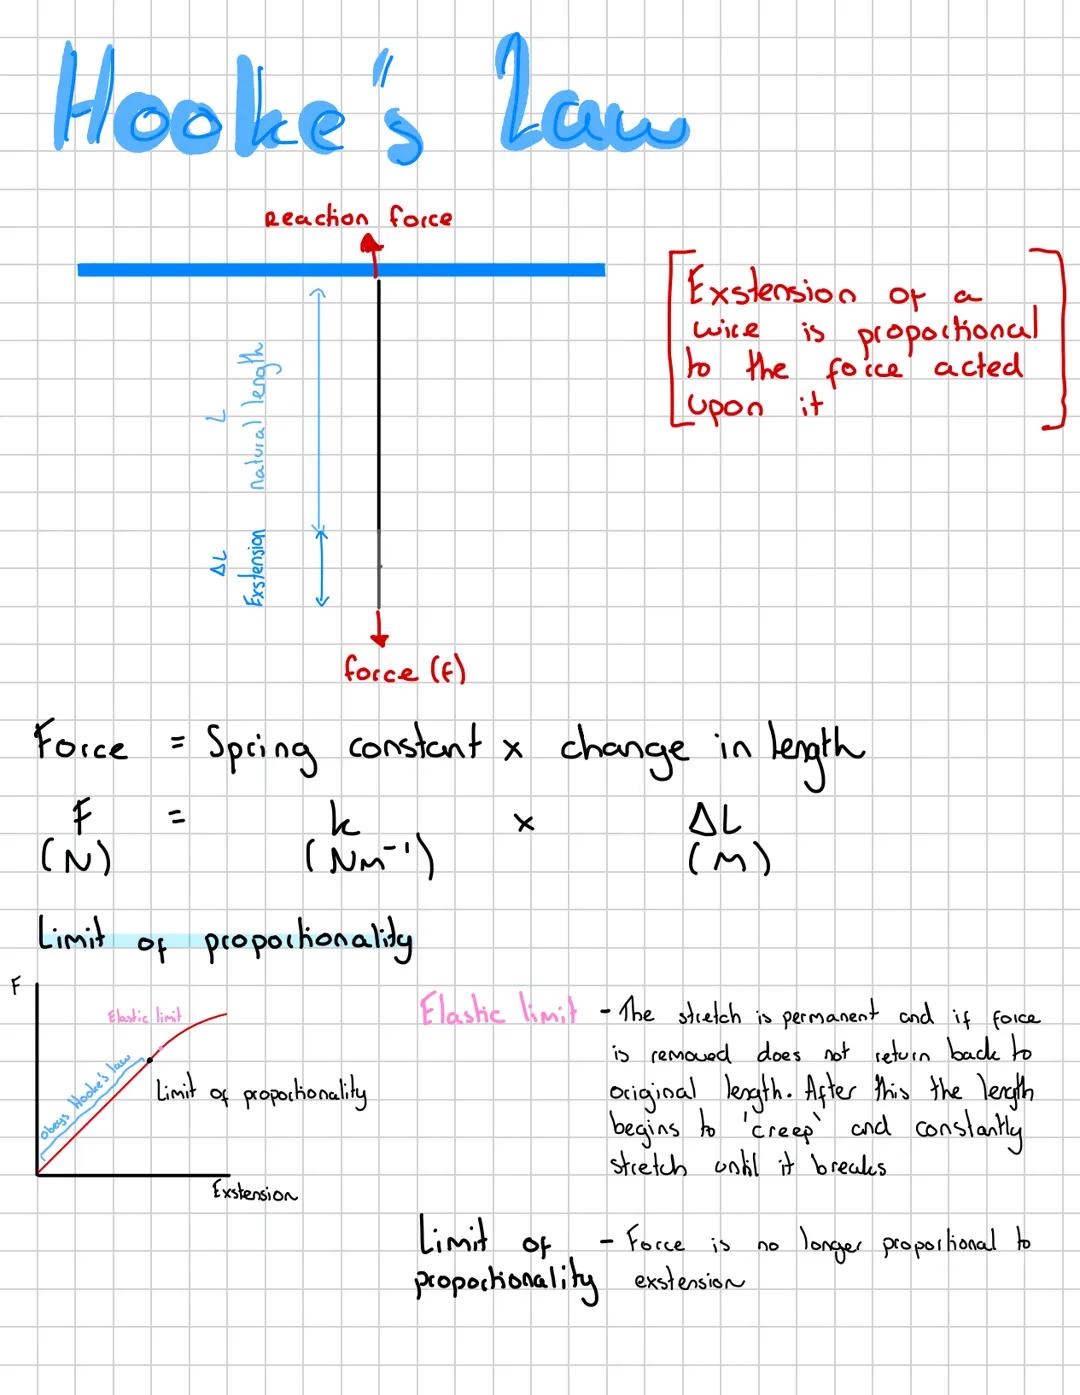 Hooke's Law
Reaction force
Exstension of a
wire is proportional
to the force acted
upon it
L
natural length
ΔL
Exstension
force (F)
Force = Spring constant x change in length
F = k x ΔL
(N) (Nm⁻¹) (M)
Limit of proportionality
F
Elastic limit
obeys Hooke's law
Limit of proportionality
Exstension
Elastic limit - The stretch is permanent and if force
is removed does not return back to
original length. After this the length
begins to 'creep' and constantly
stretch until it breaks
Limit of - Force is no longer proportional to
proportionality exstension